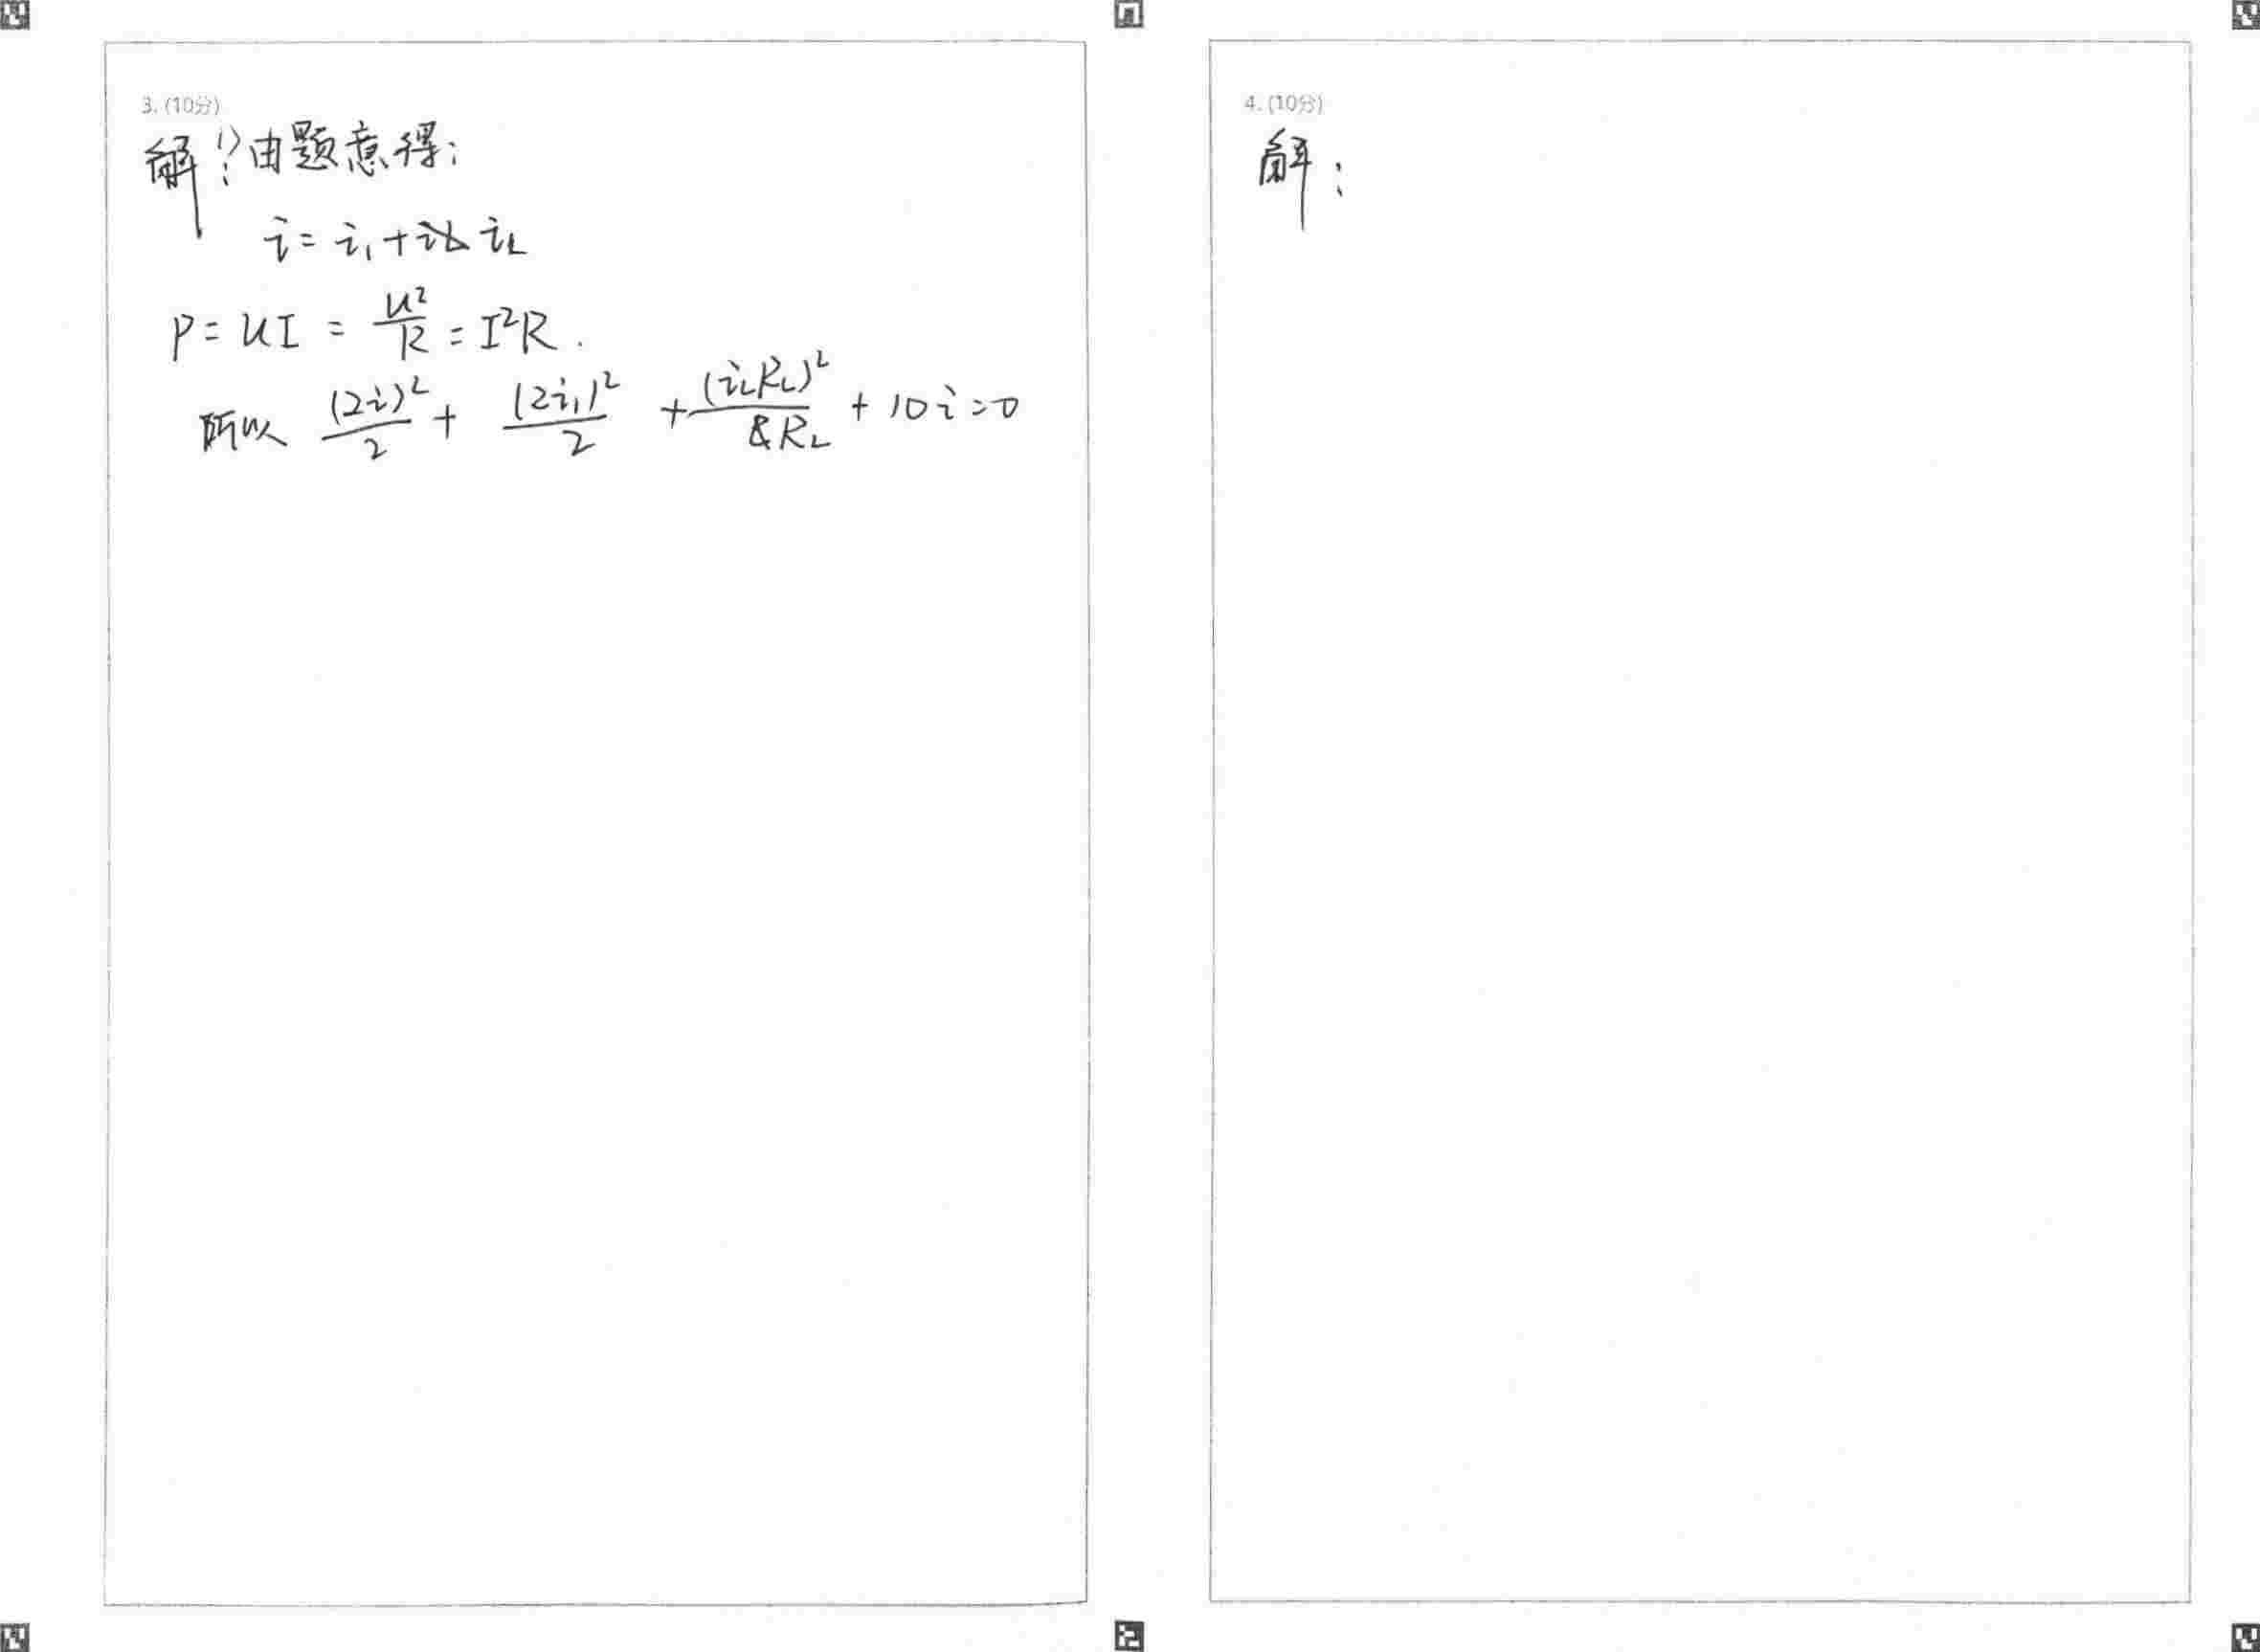 3. (10分)
解:1) 由题意得:
i = i₁ + i_L
P = UI = U²/R = I²R.
所以 (2i)²/2 + (2i₁)²/2 + (i_L R_L)²/R_L + 10i = 0
4. (10分)
解: